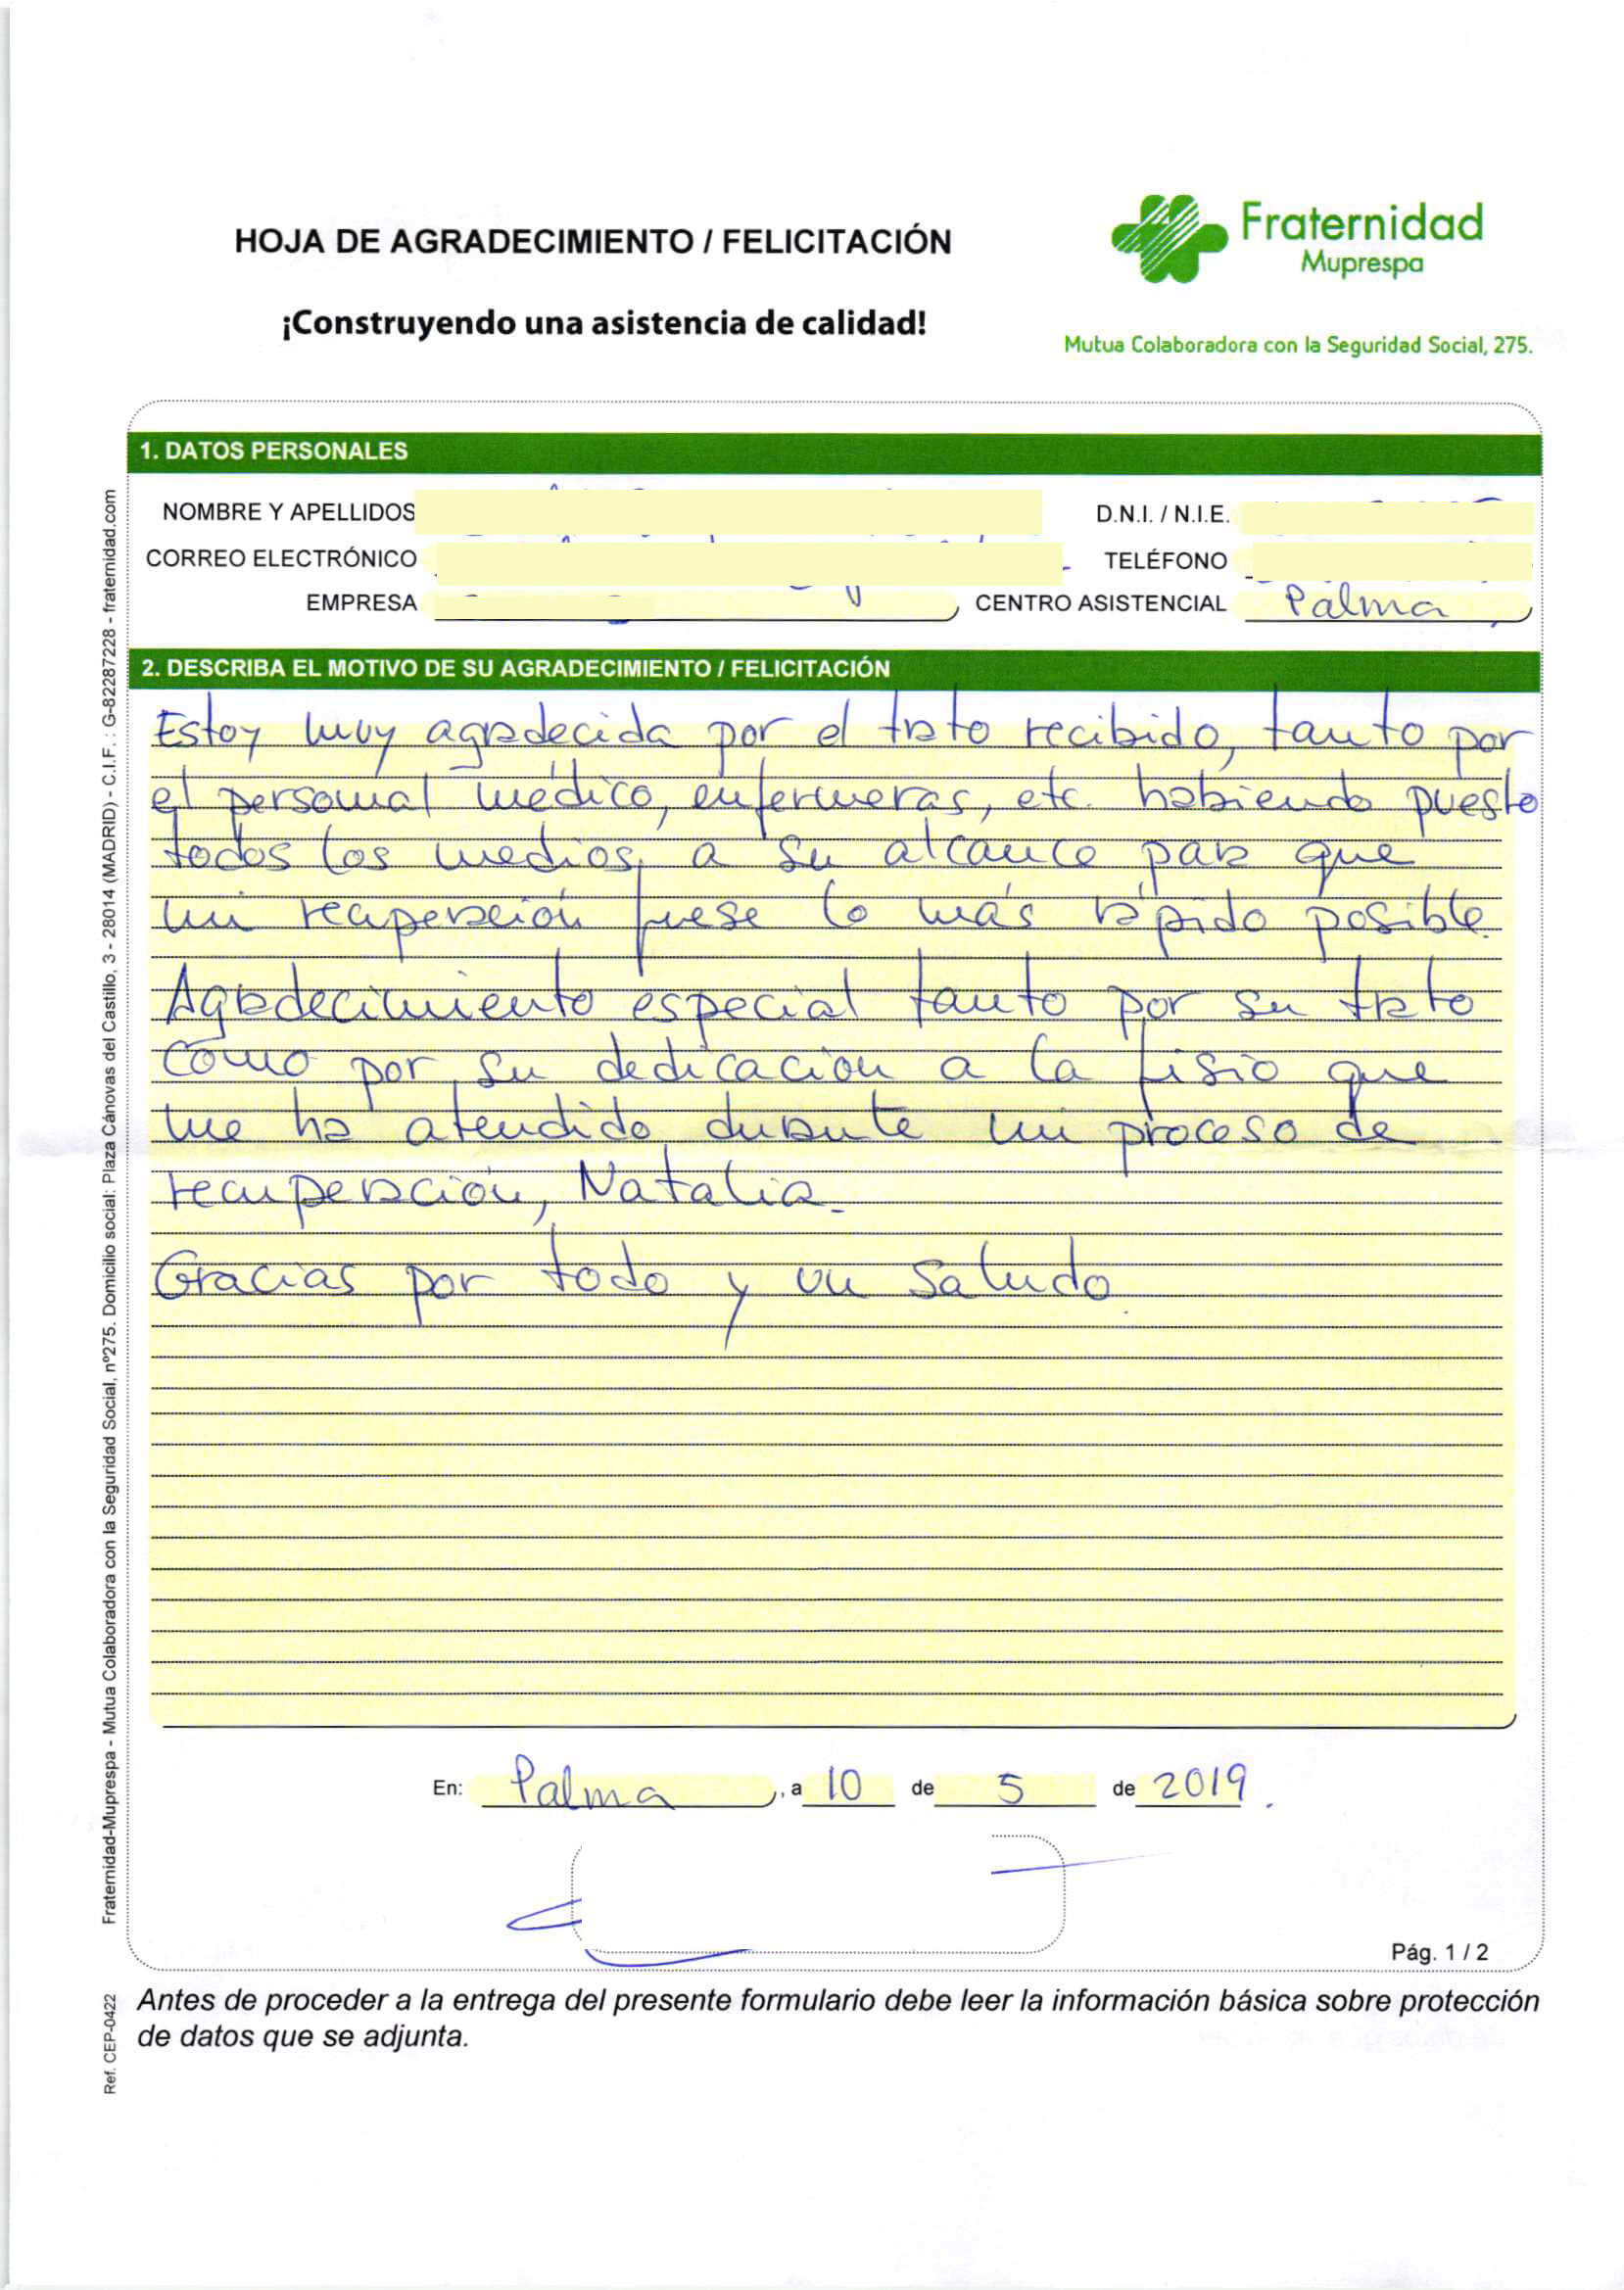 HOJA DE AGRADECIMIENTO / FELICITACIÓN
¡Construyendo una asistencia de calidad!
Fraternidad
Muprespa
Mutua Colaboradora con la Seguridad Social, 275.
1. DATOS PERSONALES
NOMBRE Y APELLIDOS
D.N.I. / N.I.E.
CORREO ELECTRÓNICO
TELÉFONO
EMPRESA
CENTRO ASISTENCIAL Palma
2. DESCRIBA EL MOTIVO DE SU AGRADECIMIENTO / FELICITACIÓN
Estoy muy agradecida por el trato recibido, tanto por
el personal médico, enfermeras, etc. habiendo puesto
todos los medios a su alcance para que
mi recuperación fuese lo más rápido posible.
Agradecimiento especial tanto por su trato
como por su dedicación a la fisio que
me ha atendido durante mi proceso de
recuperación, Natalia.
Gracias por todo y un saludo.
En: Palma, a 10 de 5 de 2019.
Pág. 1 / 2
Antes de proceder a la entrega del presente formulario debe leer la información básica sobre protección
de datos que se adjunta.
Fraternidad-Muprespa - Mutua Colaboradora con la Seguridad Social, nº275. Domicilio social: Plaza Cánovas del Castillo, 3 - 28014 (MADRID) - C.I.F. : G-82287228 - fraternidad.com
Ref. CEP-0422